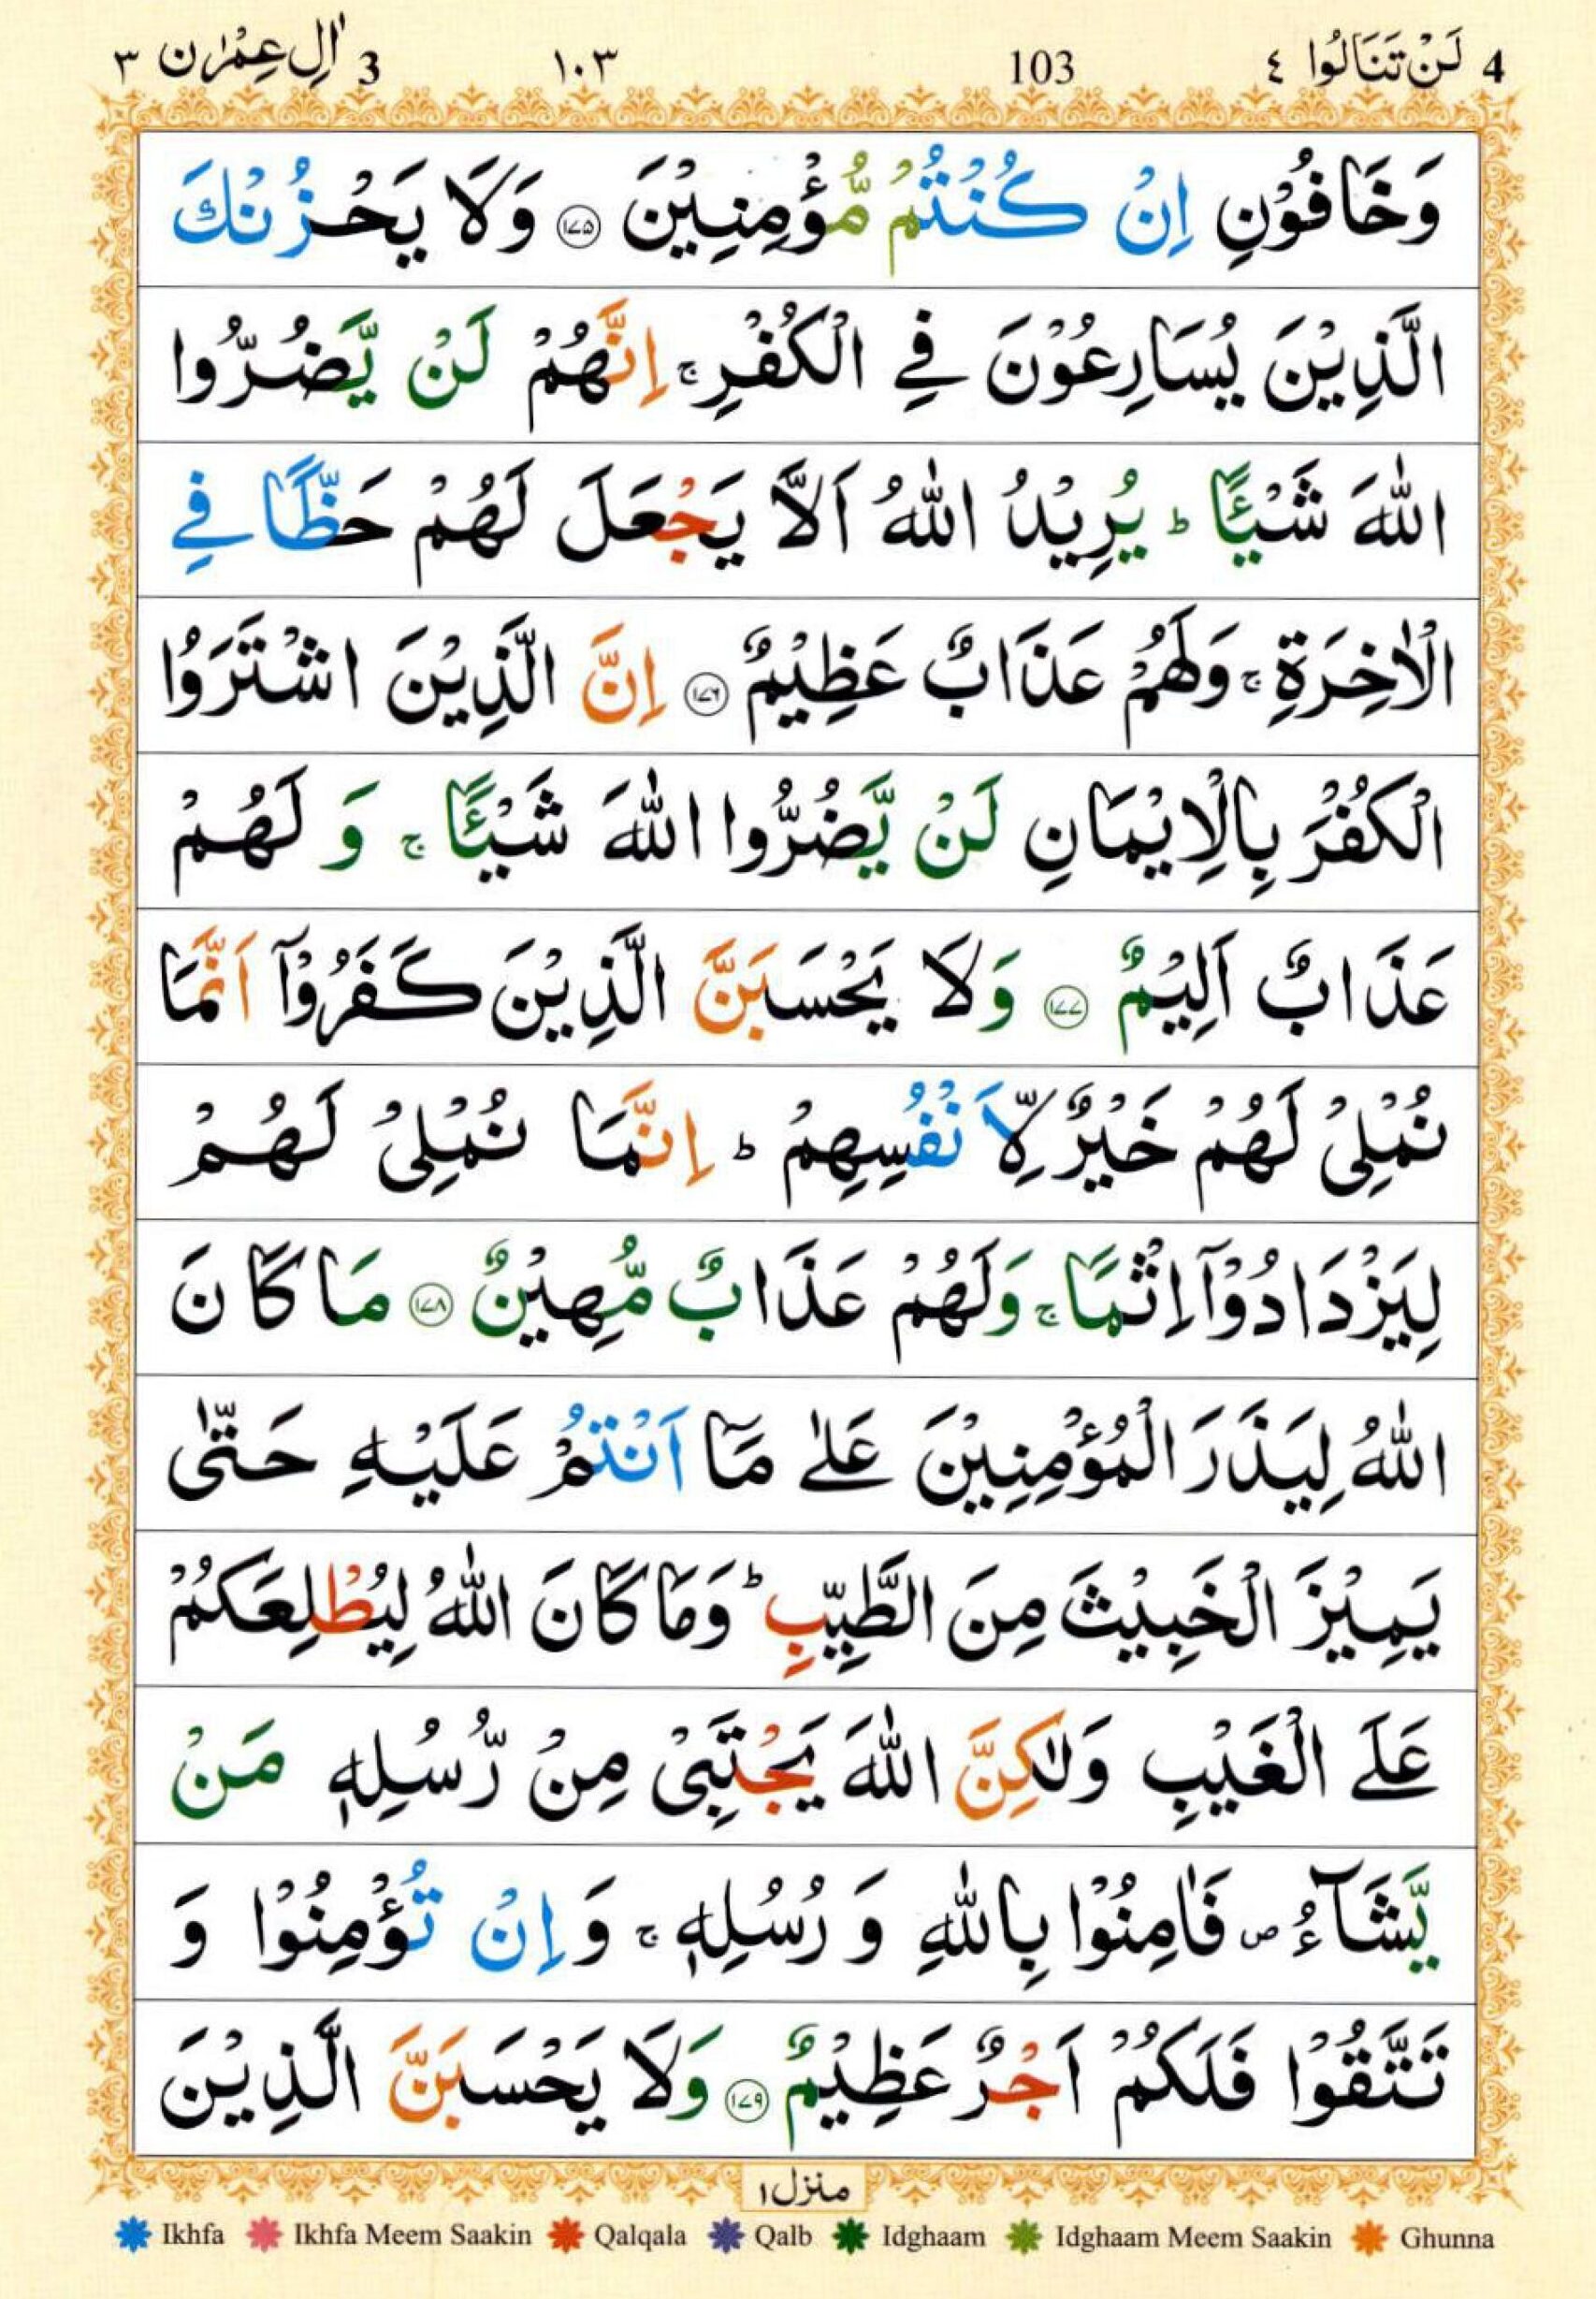 4 لَنْ تَنَالُوا ٤ 103 ١٠٣ 3 اٰلِ عِمْرٰن ٣
وَخَافُوْنِ اِنْ كُنْتُمْ مُّؤْمِنِيْنَ ﴿١٧٥﴾ وَلَا يَحْزُنْكَ
الَّذِيْنَ يُسَارِعُوْنَ فِي الْكُفْرِ ۚ اِنَّهُمْ لَنْ يَّضُرُّوا
اللّٰهَ شَيْـًٔا ؕ يُرِيْدُ اللّٰهُ اَلَّا يَجْعَلَ لَهُمْ حَظًّا فِي
الْاٰخِرَةِ ۚ وَلَهُمْ عَذَابٌ عَظِيْمٌ ﴿١٧٦﴾ اِنَّ الَّذِيْنَ اشْتَرَوُا
الْكُفْرَ بِالْاِيْمَانِ لَنْ يَّضُرُّوا اللّٰهَ شَيْـًٔا ۚ وَ لَهُمْ
عَذَابٌ اَلِيْمٌ ﴿١٧٧﴾ وَلَا يَحْسَبَنَّ الَّذِيْنَ كَفَرُوْۤا اَنَّمَا
نُمْلِيْ لَهُمْ خَيْرٌ لِّاَنْفُسِهِمْ ؕ اِنَّمَا نُمْلِيْ لَهُمْ
لِيَزْدَادُوْۤا اِثْمًا ۚ وَلَهُمْ عَذَابٌ مُّهِيْنٌ ﴿١٧٨﴾ مَا كَانَ
اللّٰهُ لِيَذَرَ الْمُؤْمِنِيْنَ عَلٰى مَاۤ اَنْتُمْ عَلَيْهِ حَتّٰى
يَمِيْزَ الْخَبِيْثَ مِنَ الطَّيِّبِ ؕ وَمَا كَانَ اللّٰهُ لِيُطْلِعَكُمْ
عَلَى الْغَيْبِ وَلٰكِنَّ اللّٰهَ يَجْتَبِيْ مِنْ رُّسُلِهٖ مَنْ
يَّشَآءُ ۪ فَاٰمِنُوْا بِاللّٰهِ وَ رُسُلِهٖ ۚ وَ اِنْ تُؤْمِنُوْا وَ
تَتَّقُوْا فَلَكُمْ اَجْرٌ عَظِيْمٌ ﴿١٧٩﴾ وَلَا يَحْسَبَنَّ الَّذِيْنَ
منزل ١
Ikhfa Ikhfa Meem Saakin Qalqala Qalb Idghaam Idghaam Meem Saakin Ghunna